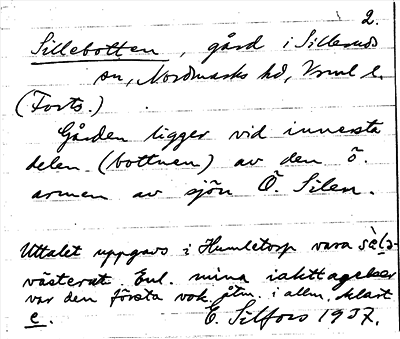 2.
Sillebotten, gård i Silleruds
sn, Nordmarks hd, Vrml l.
(Forts.)
Gården ligger vid innersta
delen (bottnen) av den ö.
armen av sjön Ö. Silen.
Uttalet uppgavs i Humletorp vara
västerut Enl. mina iakttagelser
var den första vok. åtm. i allm. klart
e.
E. Silfors 1937.